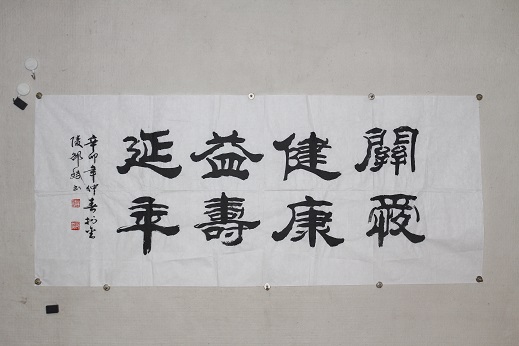 關愛
健康
益壽
延年
辛卯年仲春於金
陵邵